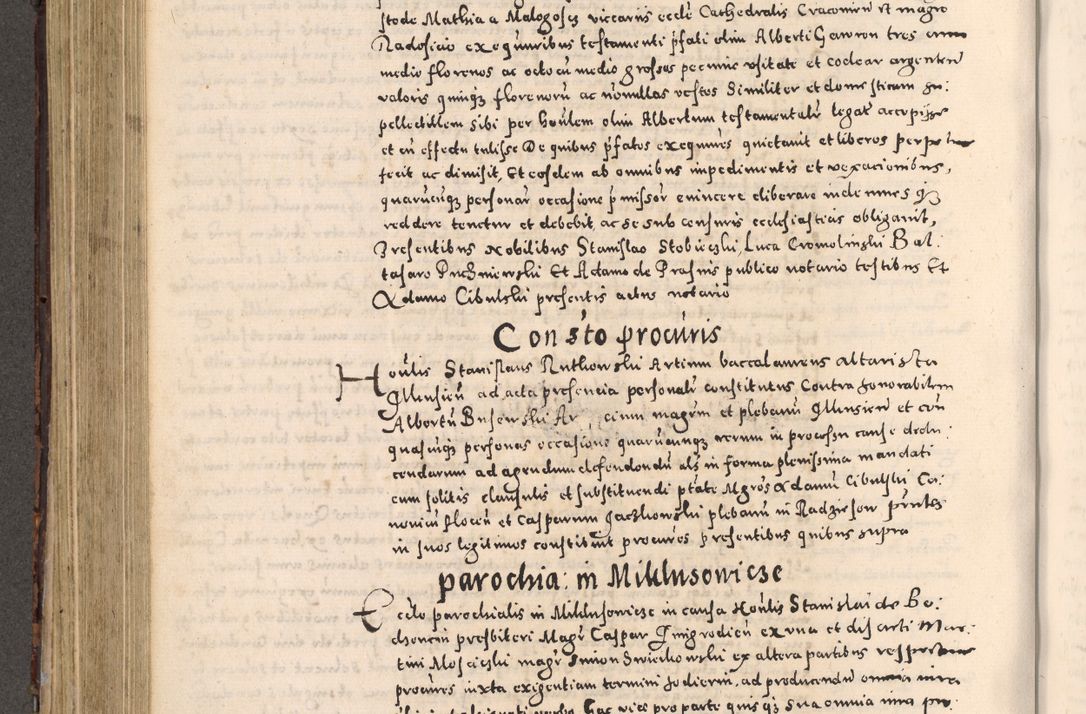 stode Mathia a Malogoscz viccariis eccle Cathedralis Cracovien et magro
Radosicio exequutoribus testamenti pfati olim Alberti Gawron tres cum
medio florenos ac octo cu medio grossos pecunie usitate et coclear argenteu
valoris quinqz florenoru ac nonnullas vestes similiter et domesticam su:
pellectillem sibi per houlem olim Albertum testamentalr legat accepisse
et cu effectu tulisse De quibus pfatos exequures quietavit et liberos perpetuo
fecit ac dimisit, Et eosdem ab omnibus impedimentis et vexacionibus,
quarucuqz personar occasione pmissor evincere eliberare indemnes qz
reddere tenetur et debebit, ac se sub censuris ecclesiasticis obligavit,
Presentibus Nobilibus Stanislao Stobieczki, Luca Cromolinski Bal:
tasaro Puchniewski Et Adamo de Prasnis publico notario testibus Et
Adamo Cibulski presentis actus notario
Con sto procuris
Houlis Stanislaus Rutkowski Artium baccalaureus altarista
Ilkusien ad acta presencia personalr constitutus Contra honorabilem
Albertu Busewski Ar cium magrm et plebanu Ilkusien et cun
quasuiqz personas occasione quarucunqz rerum in processu cause dedu:
cendarum ad agendum defendendu als in forma plenissima mandati
cum solitis clausulis et substituendi ptate Mgros Adamu Cibulski Ca:
nonicu Plocen et Casparum Jaczkowski plebanu in Radziejow pntes
in suos legitimos constituit procures presentibus quibus supra
parochia: in Miklusowicze
Ecclo parochialis in Miklusowicze in causa Houlis Stanislai de Bo:
chonein presbiteri Magr Caspar Jmigrodieu ex una et discreti Mar:
tini Mosciczki magr Simon Swieckowski ex altera partibus respective
procures iuxta exigentiam termini hodierni, ad producendu omnia iura
hac vice pro parte quisqz sua omnia iura pro: